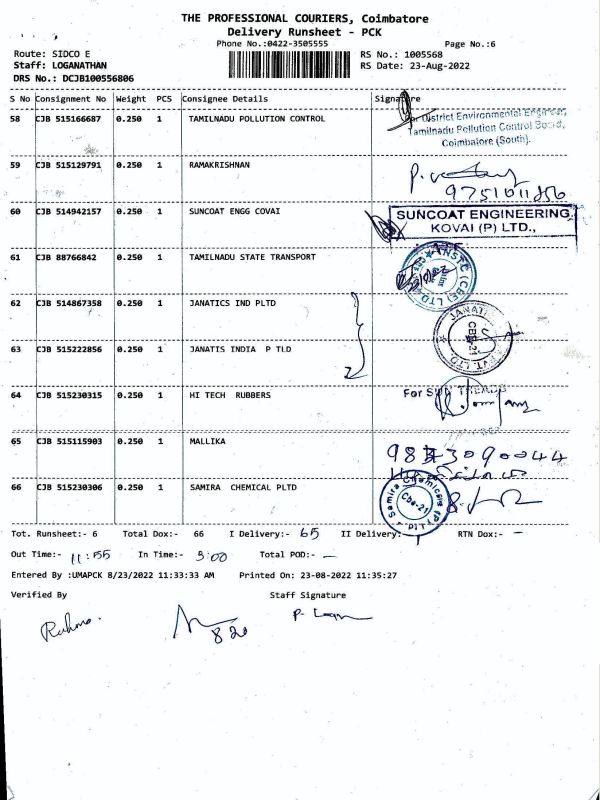 THE PROFESSIONAL COURIERS, Coimbatore
Delivery Runsheet - PCK
Phone No.:0422-3505555
Page No.:6
Route: SIDCO E
RS No.: 1005568
Staff: LOGANATHAN
RS Date: 23-Aug-2022
DRS No.: DCJB100556806
S No Consignment No Weight PCS Consignee Details Signature
58 CJB 515166687 0.250 1 TAMILNADU POLLUTION CONTROL
For District Environmental Engineer,
Tamilnadu Pollution Control Board,
Coimbatore (South).
59 CJB 515129791 0.250 1 RAMAKRISHNAN
9751011856
60 CJB 514942157 0.250 1 SUNCOAT ENGG COVAI
SUNCOAT ENGINEERING
KOVAI (P) LTD.,
61 CJB 88766842 0.250 1 TAMILNADU STATE TRANSPORT
62 CJB 514867358 0.250 1 JANATICS IND PLTD
63 CJB 515222856 0.250 1 JANATIS INDIA P TLD
64 CJB 515230315 0.250 1 HI TECH RUBBERS
For SUN THEADS
65 CJB 515115903 0.250 1 MALLIKA
66 CJB 515230306 0.250 1 SAMIRA CHEMICAL PLTD
Samira Chemicals (P)
Cbe-21
Tot. Runsheet:- 6 Total Dox:- 66 I Delivery:- 65 II Delivery:- RTN Dox:- -
Out Time:- 11:55 In Time:- 5:00 Total POD:- -
Entered By :UMAPCK 8/23/2022 11:33:33 AM Printed On: 23-08-2022 11:35:27
Verified By Staff Signature
820